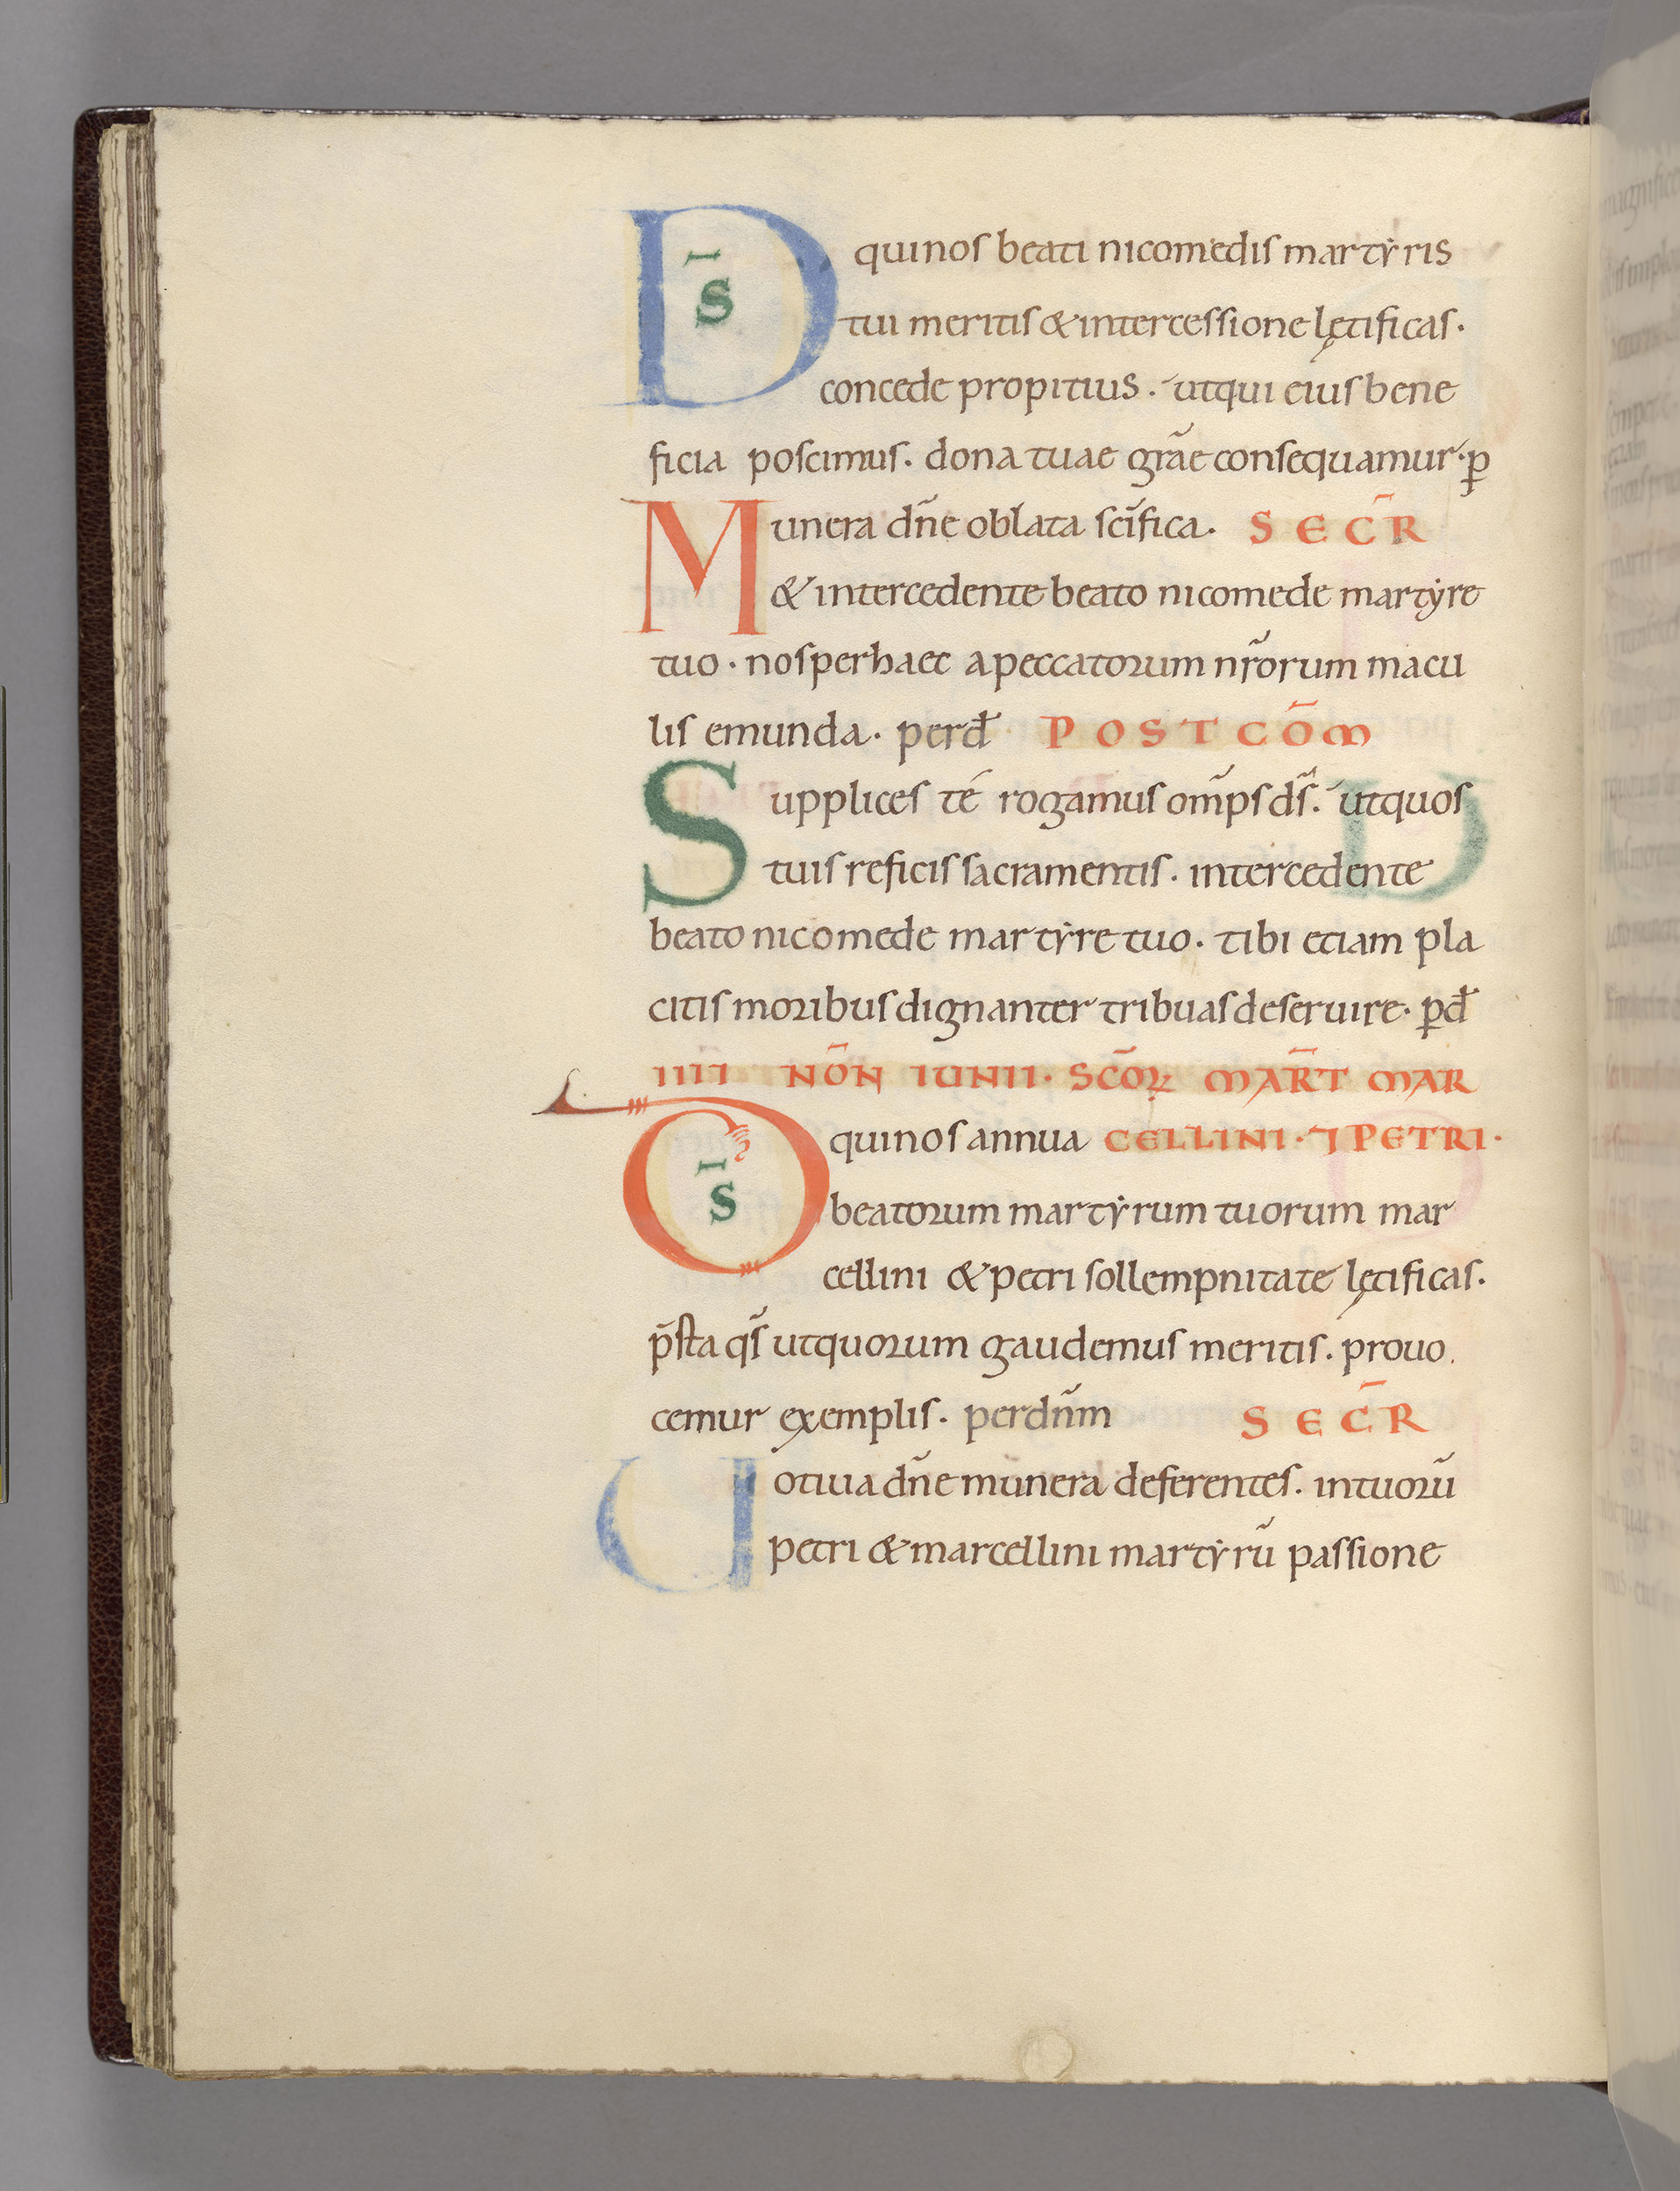 D̄S qui nos beati nicomedis martẏris
tui meritis & intercessione lętificas.
concede propitius. ut qui eius bene
ficia poscimus. dona tuae gr̄ae consequamur. p̲
Munera dn̄e oblata sc̄ifica. SECR̄
& intercedente beato nicomede martẏre
tuo. nos per haec a peccatorum nr̄orum macu
lis emunda. per đ POST COM̄
Supplices te rogamus om̄ps d̄s. ut quos
tuis reficis sacramentis. intercedente
beato nicomede martẏre tuo. tibi etiam pla
citis moribus dignanter tribuas deseruire. p̲ đ
IIII NON̄ IUNII. SC̄OꝜ MAR̄T MAR
D̄S qui nos annua CELLINI. ⁊ PETRI.
beatorum martẏrum tuorum mar
cellini & petri sollempnitate lętificas.
p̄sta qs̄ ut quorum gaudemus meritis. prouo
cemur exemplis. per dn̄m SECR̄
Uotiua dn̄e munera deferentes. in tuorū
petri & marcellini martẏrū passione